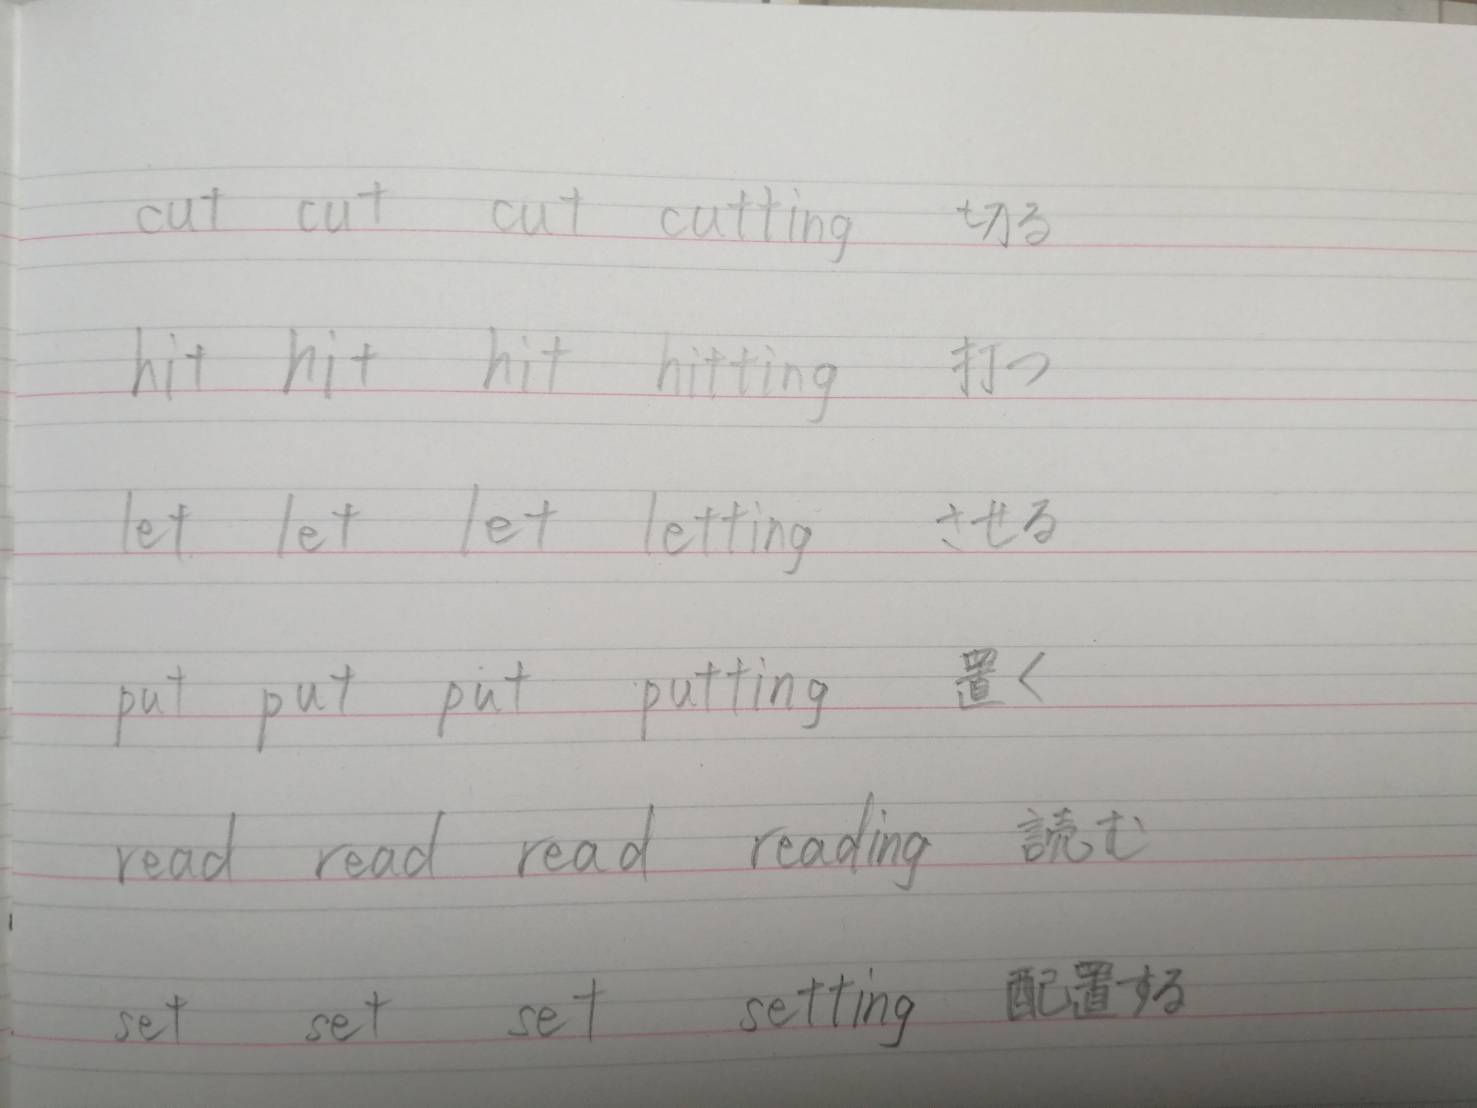 cut cut cut cutting 切る
hit hit hit hitting 打つ
let let let letting させる
put put put putting 置く
read read read reading 読む
set set set setting 配置する